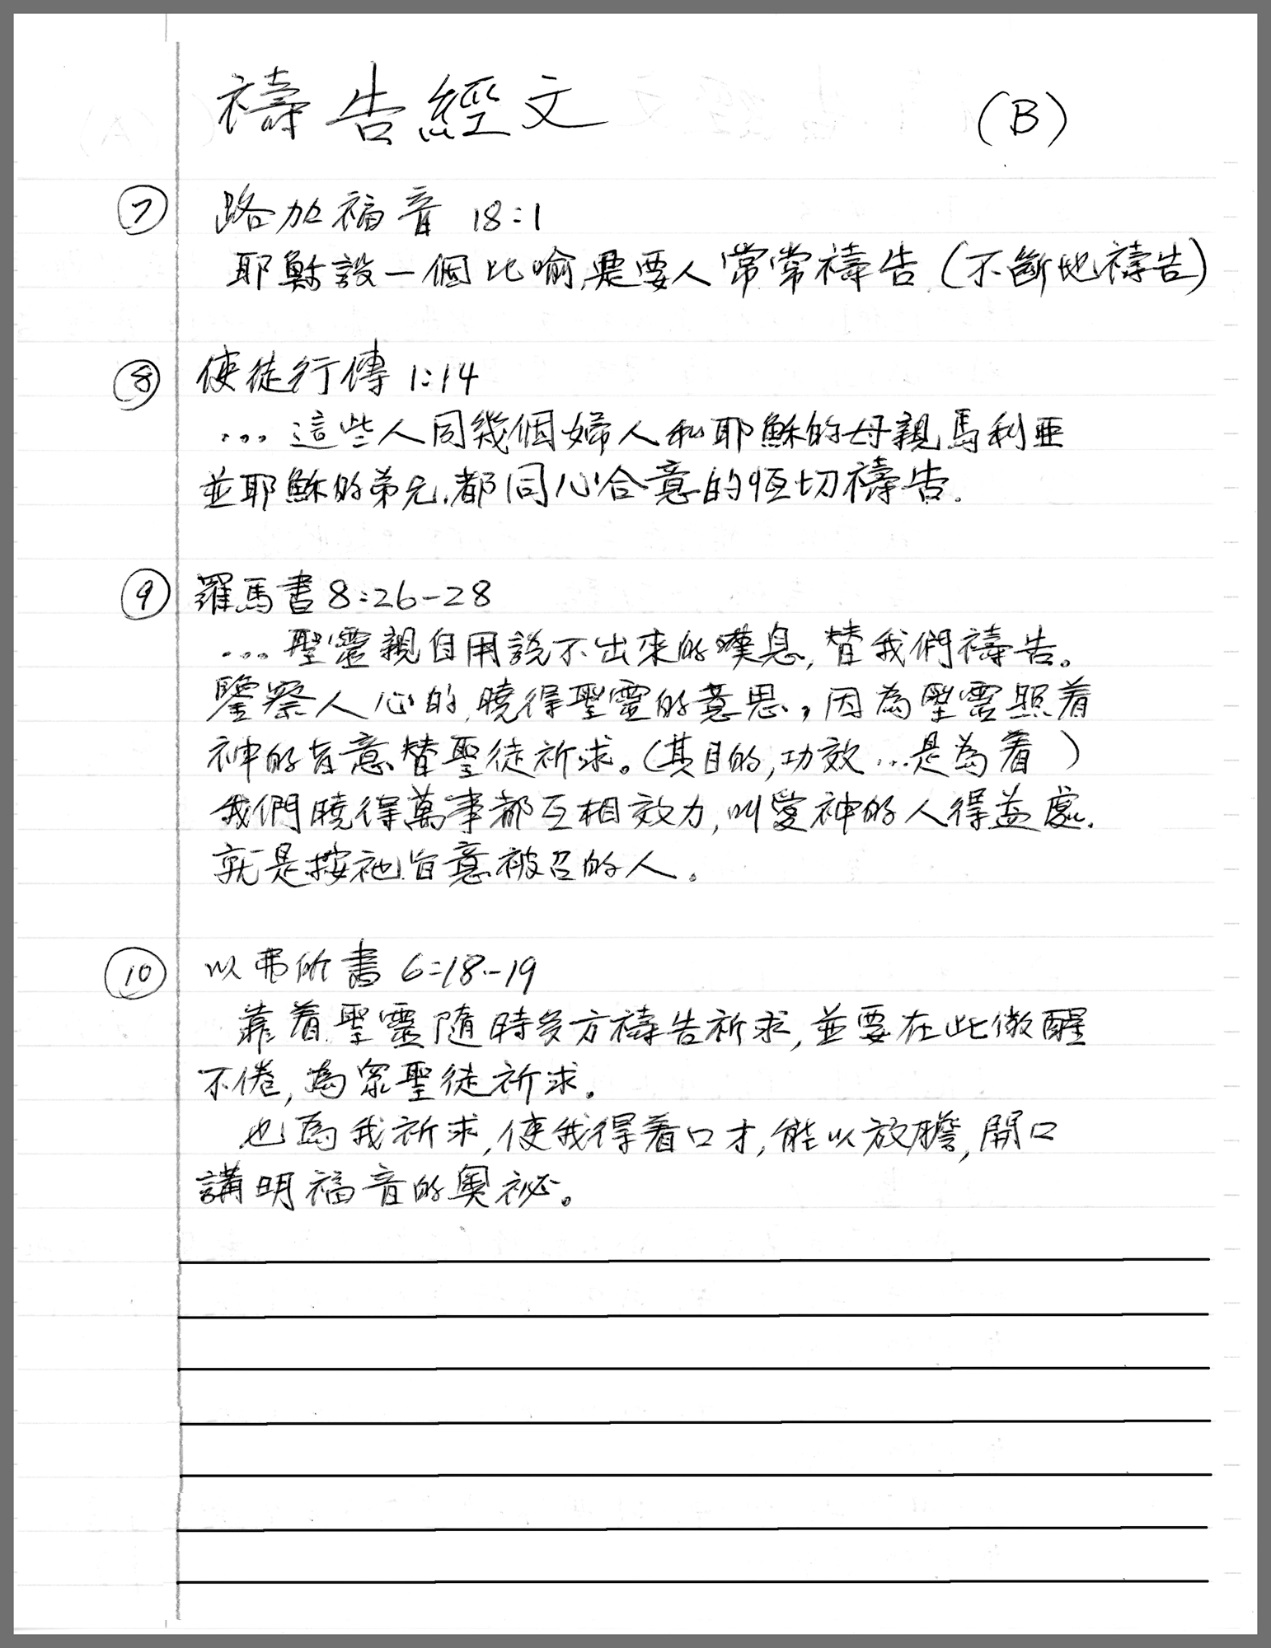 禱告經文 (B)
⑦ 路加福音 18:1
耶穌設一個比喻,是要人常常禱告.(不斷地禱告)
⑧ 使徒行傳 1:14
... 這些人同幾個婦人和耶穌的母親馬利亞
並耶穌的弟兄,都同心合意的恆切禱告.
⑨ 羅馬書 8:26-28
... 聖靈親自用說不出來的嘆息,替我們禱告。
鑒察人心的,曉得聖靈的意思,因為聖靈照着
神的旨意替聖徒祈求。(其目的,功效...是為着 )
我們曉得萬事都互相效力,叫愛神的人得益處.
就是按祂旨意被召的人。
⑩ 以弗所書 6:18-19
靠着聖靈隨時多方禱告祈求,並要在此儆醒
不倦,為眾聖徒祈求.
也為我祈求,使我得着口才,能以放膽,開口
講明福音的奧祕。